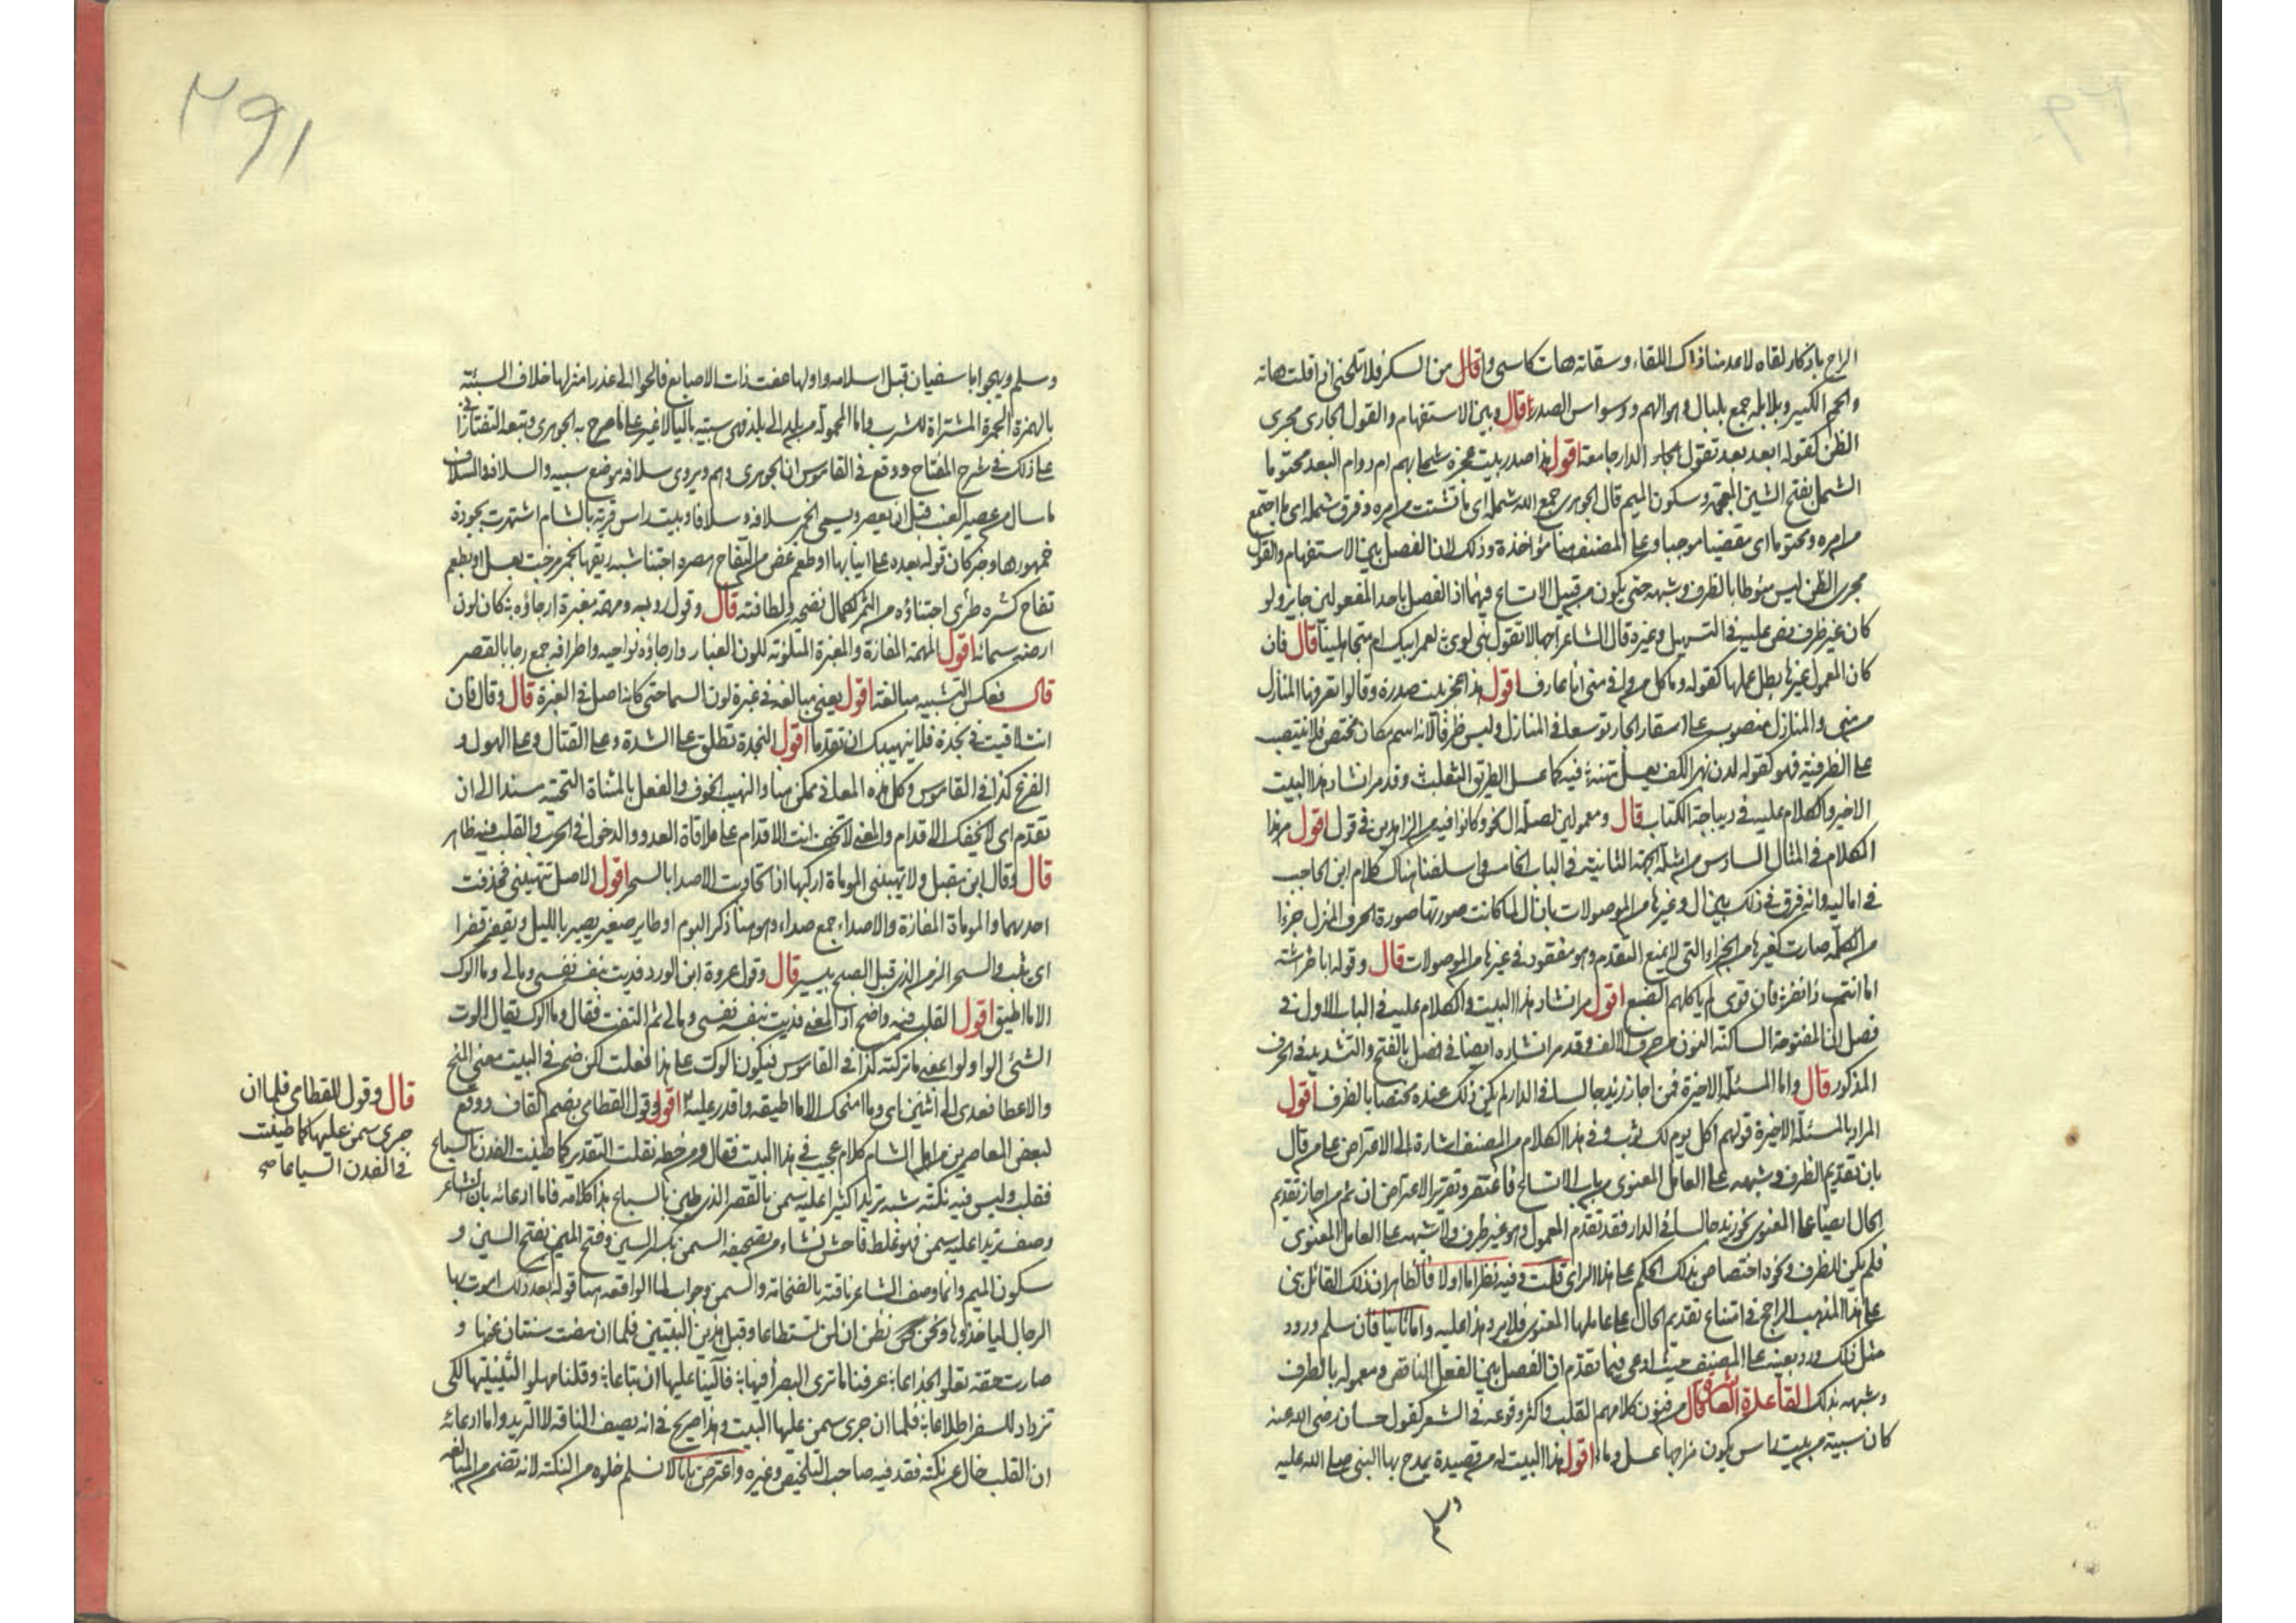 الراح باذكار لقاه لاعدمنا ذاك اللقاء وسقاته هات كاسي وا قال من السكر فلا تلحني اذا قلت هاته
والحجم الكبير وبلابله جمع بلبال وهو الهم ووسواس الصدر قال وبين الاستفهام والقول الجاري مجرى
الظن كقوله ابعد بعد تقول الدار جامعة اقول هذا صدر بيت عجزه شملي بهم ام دوام البعد محتوما
الشمل بفتح الشين المعجمة وسكون الميم قال الجوهري جمع الله شمله اي ما تشتت من امره وفرق شمله اي ما اجتمع
من امره ومحتوما اي مقضيا موجبا وعلى المصنف هنا مؤاخذة وذلك لان الفصل بين الاستفهام والقول
مجرى الظن ليس منوطا بالظرف وشبهه حتى يكون من قبيل الاتساع فيهما اذ الفصل باحد المفعولين جايز ولو
كان غير ظرف نص عليه في التسهيل وغيره قال الشاعر اجهالا تقول بني لوي لعمر ابيك ام متجاهلينا قال فان
كان المعمول غيرها بطل عملها كقوله وما كل من وافى منى انا عارف اقول هذا عجز بيت صدره وقالوا تعرفها المنازل
من منى والمنازل منصوب على اسقاط الجار توسعا في المنازل وليس ظرفا لانه اسم مكان مختص فلا ينتصب
على الظرفية فهو كقوله لدن بهز الكف يعسل متنه فيه كما عسل الطريق الثعلب وقد مر انشاد هذا البيت
الاخير والكلام عليه في ديباجة الكتاب قال ومعمولين لصلة ال نحو وكانوا فيه من الزاهدين في قول اقول مر هذا
الكلام في المثال السادس من امثلة الجهة الثانية في الباب الخامس واسلفنا هناك كلام ابن الحاجب
في اماليه وانه فرق في ذلك بين ال وغيرها من الموصولات بان ال لما كانت صورتها صورة الحرف المنزل جزءا
من الكلمة صارت كغيرها من الاجزاء التي لا يمنع التقدم وهو مفقود في غيرها من الموصولات قال وقوله ابا خراشة
اما انت ذا نفر فان قومي لم ياكلهم الضبع اقول مر انشاد هذا البيت والكلام عليه في الباب الاول في
فصل ان المفتوحة الساكنة النون من حرف الالف وقد مر انشاده ايضا في فصل بالفتح والتشديد في الحرف
المذكور قال واما المسئلة الاخيرة فمن اجاز زيد جالسا في الدار لم يكن ذلك عنده مختصا بالظرف اقول
المراد بالمسئلة الاخيرة قولهم اكل يوم لك ثوب وفي هذا الكلام من المصنف اشارة الى الاعتراض على من قال
بان تقديم الظرف وشبهه على العامل المعنوي من باب الاتساع فاغتفر وتقرير الاعتراض ان ثم من اجاز تقديم
الحال ايضا على المعنوي نحو زيد جالسا في الدار فقد تقدم المعمول وهو غير ظرف ولا شبهه على العامل المعنوي
فلم يكن للظرف ونحوه اختصاص بذلك الحكم على هذا الراي قلت وفيه نظر اما اولا فالظاهر ان ذلك القائل بنى
على هذا المذهب الراجح في امتناع تقديم الحال على عاملها المعنوي فلا يرد هذا عليه واما ثانيا فان سلم ورود
مثل ذلك ورد بعينه على المصنف حيث ادعى فيما تقدم ان الفصل بين الفعل الناقص ومعموله بالظرف
وشبهه بذلك القاعدة العاشرة قال من فنون كلامهم القلب واكثر وقوعه في الشعر كقول حسان رضي الله عنه
كان سبيئة من بيت راس يكون مزاجها عسل وماء اقول هذا البيت له من قصيدة يمدح بها النبي صلى الله عليه
٢٩١
وسلم ويهجو ابا سفيان قبل اسلامه واولها عفت ذات الاصابع فالجواء الى عذراء منزلها خلاء السبيئة
بالهمزة الخمرة المشتراة للشرب واما المحمولة من بلد الى بلد فهي سبية بالياء لا غير على ما صرح به الجوهري وتبعه التفتازاني
على ذلك في شرح المفتاح ووقع في القاموس ان الجوهري وهم ويروى سلافة موضع سبيه والسلاف والسلافة
ما سال من عصير العنب قبل ان يعصر ويسمى الخمر سلافة وسلافا وبيت راس قرية بالشام اشتهرت بجودة
خمورها وخبر كان قوله بعده على انيابها او طعم غض من التفاح هصره اجتنا شبه ريقها بخمر مزجت بعسل او بطعم
تفاح كسره طري اجتناؤه من الثمر لكمال نضجه ولطافته قال وقول روبه ومهمه مغبرة ارجاؤه كان لون
ارضه سمائه اقول المهمه المفازة والمغبرة المتلونة للون الغبار وارجاؤه نواحيه واطرافه جمع رجا بالقصر
قال فعكس التشبيه مبالغة اقول يعني مبالغة في غبرة لون السما حتى كانه اصل في الغبرة قال وقال فان
انت لاقيت في نجدة فلا يتهيبك ان تقدما اقول النجدة تطلق على الشدة وعلى القتال وعلى الهول و
الفزع كذا في القاموس وكل هذه المعاني ممكن هنا والتهيب الخوف والفعل بالمثناة التحتية مسندا الى ان
تقدم اي لا يخيفك الاقدام والمعنى لا تخف انت الاقدام على ملاقاة العدو والدخول في الحرب والقلب فيه ظاهر
قال وقال ابن مقبل ولا تهيبني الموماة اركبها اذا تجاوبت الاصدا بالسحر اقول الاصل تتهيبني فحذفت
احديهما والموماة المفازة والاصداء جمع صداء وهو هنا ذكر البوم او طاير صغير يصر بالليل ويقفز قفزا
اي يثب والسحر الزمن الذي قبل الصبح بيسير قال وقول عروة ابن الورد فديت بنفسه نفسي ومالي وما الوك
الا ما اطيق اقول القلب فيه واضح اذ المعنى فديت نفسه بنفسي ومالي ثم التفت فقال وما الوك يقال الوت
الشئ الوا ولوا بمعنى ما تركته كذا في القاموس فيكون الوك على هذا فعلت لكن ضمن في البيت معنى المنح
والاعطا فعدى الى اثنين اي وما امنحك الا ما اطيقه واقدر عليه اقول وقول القطامي بضم القاف ووقع
لبعض المعاصرين من اهل الشام كلام عجيب في هذا البيت فقال ومن خطه نقلت التقدير كما طينت الفدن بالسياع
فقلب وليس فيه نكتة شبه تريدا كثيرا عليه سمن بالقصر الذي طين بالسياع هذا كلامه فاما ادعائه بان الشاعر
وصف تريدا عليه سمن فهو غلط فاحش نشاء من تصحيفه السمن بكسر السين وفتح الميم بفتح السين و
سكون الميم وانما وصف الشاعر ناقته بالضخامة والسمن وجواب لما الواقعة هنا قوله بعد ذلك امرت بها
الرجال ليأخذوها ونحن نظن ان لن تستطاعا وقبل هذين البيتين فلما ان مضت سنتان عنها و
صارت حقة تعلو الجذاعا عرفنا ما ترى البصراء فيها فآلينا عليها ان تباعا وقلنا مهلوا لثنيتيها لكي
تزداد للسفر اطلاعا فلما ان جرى سمن عليها البيت وهذا صريح في انه يصف الناقة لا التريد واما ادعائه
ان القلب خال عن نكتة فقد فيه صاحب التلخيص وغيره واعترض بانا لا نسلم خلوه من النكتة لانه تضمن من المبالغة
قال وقول القطامي فلما ان
جرى سمن عليها كما طينت
في الفدن السياعا صح